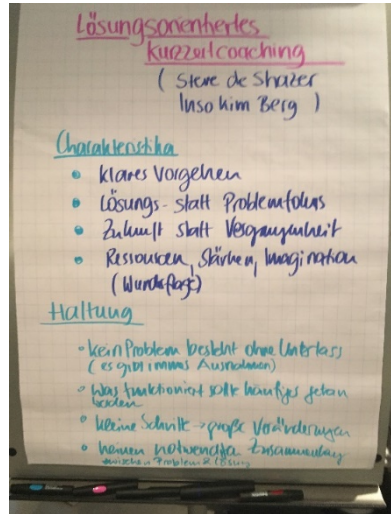 Lösungsorientiertes
Kurzzeitcoaching
( Steve de Shazer
Insoo Kim Berg )
Charakteristika
• klares Vorgehen
• Lösungs- statt Problemfokus
• Zukunft statt Vergangenheit
• Ressourcen, Stärken, Imagination
(Wunderfrage)
Haltung
• kein Problem besteht ohne Unterlass
( es gibt immer Ausnahmen)
• Was funktioniert sollte häufiger getan
werden
• kleine Schritte → große Veränderungen
• keinen notwendigen Zusammenhang
zwischen Problem & Lösung